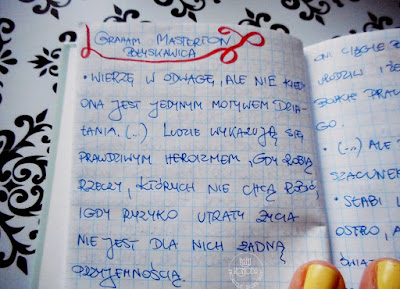 GRAHAM MASTERTON
BŁYSKAWICA
• WIERZĘ W ODWAGĘ, ALE NIE KIEDY
ONA JEST JEDYNYM MOTYWEM DZIA-
ŁANIA. (...) LUDZIE WYKAZUJĄ SIĘ
PRAWDZIWYM HEROIZMEM, GDY ROBIĄ
RZECZY, KTÓRYCH NIE CHCĄ ROBIĆ,
I GDY RYZYKO UTRATY ŻYCIA
NIE JEST DLA NICH ŻADNĄ
PRZYJEMNOŚCIĄ.
ONI CIĄGLE
GO.
• (...) ALE
SZACUNEK
• SŁABI
OSTRO, A